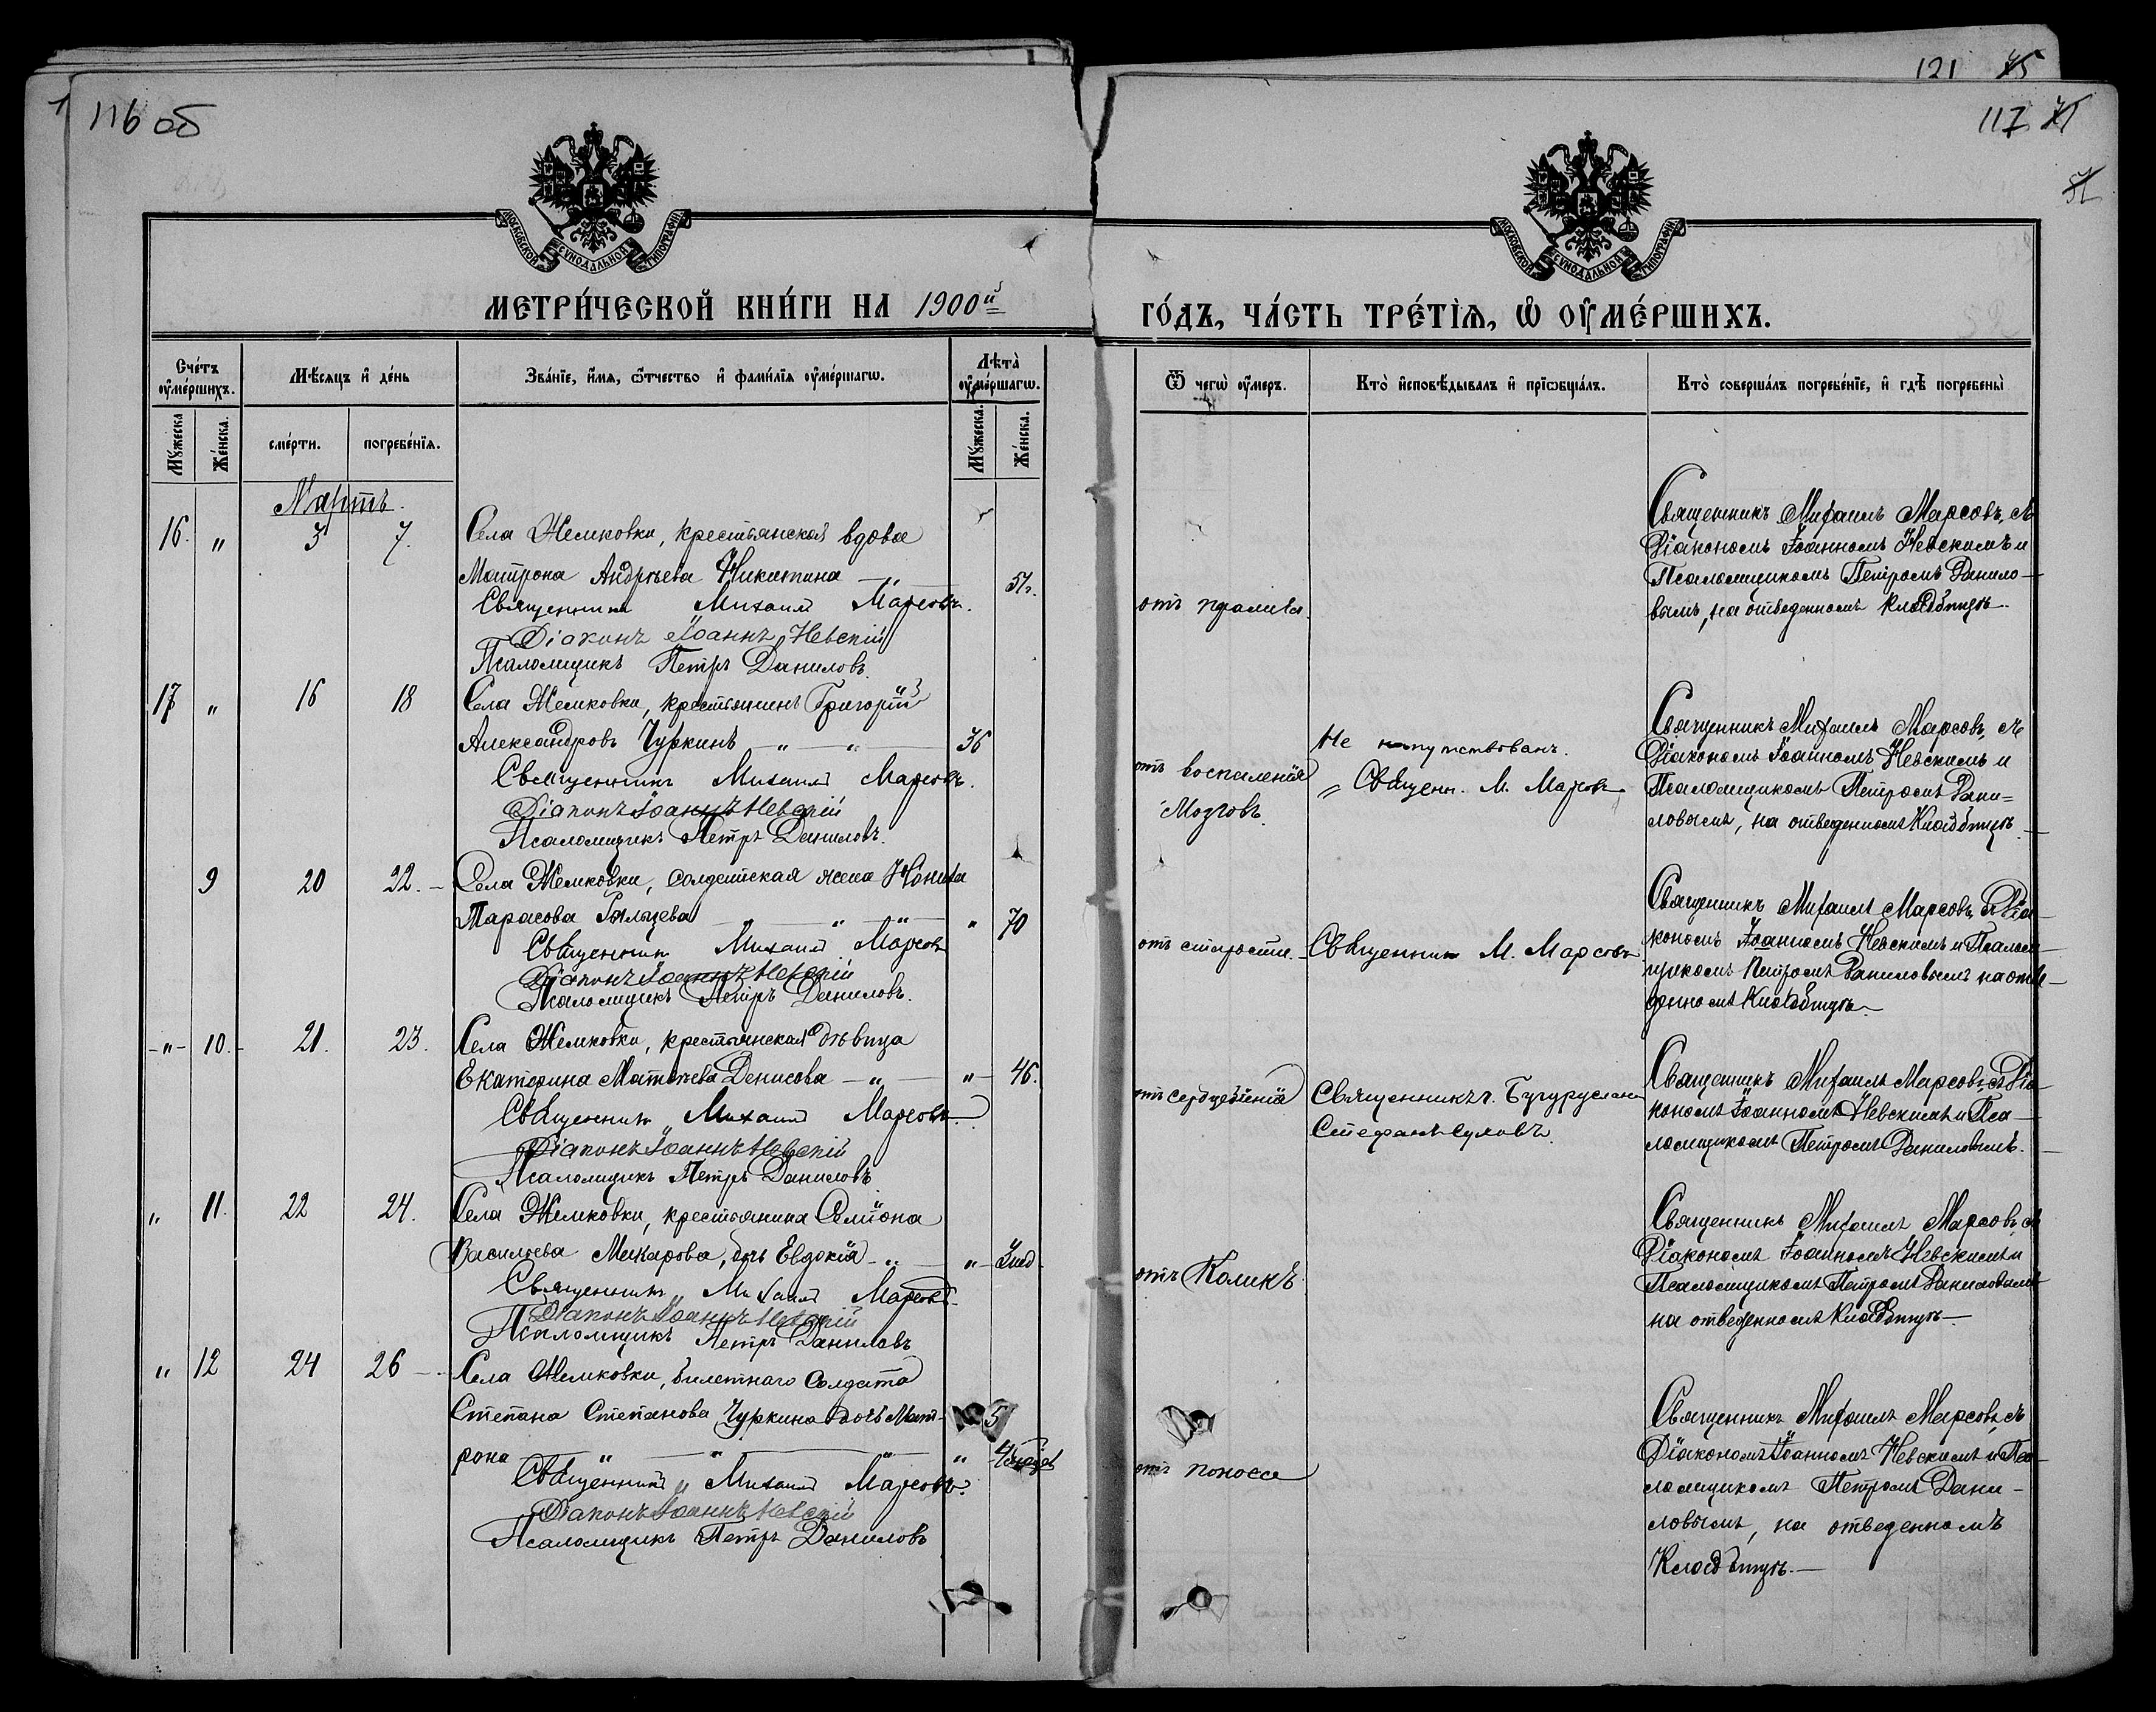 121 45
116 об
117
МОСКОВСКОЙ СѴНОДАЛЬНОЙ ТИПОГРАФІИ
МОСКОВСКОЙ СѴНОДАЛЬНОЙ ТИПОГРАФІИ
МЕТРИ́ЧЕСКОЙ КНИ́ГИ НА 1900й
ГО́ДЪ, ЧА́СТЬ ТРЕ́ТІѦ, Ѡ ОУМЕ́РШИХЪ.
Сче́тъ оуме́ршихъ.
Мѣ́сяцъ и де́нь
Зва́нїе, и́мя, ѿтчество и фами́лїя оуме́ршагѡ.
Лѣта̀ оуме́ршагѡ.
Ѿ чегѡ̀ оу́меръ.
Кто̀ исповѣ́дывалъ и прїѡбща́лъ.
Кто̀ соверша́лъ погребе́нїе, и гдѣ̀ погребены̀
Мꙋ́жеска
Же́нска.
сме́рти.
погребе́нїя.
Мꙋ́жеска.
Же́нска.
Мартъ.
16. " 3 7. Села Жемковки, крестьянская вдова
Матрона Андрѣева Никитина — " — 57.
Священникъ Михаилъ Марсовъ.
Діаконъ Іоаннъ Невскій
Псаломщикъ Петръ Даниловъ.
отъ
Священникъ Михаилъ Марсовъ, съ
Діакономъ Іоанномъ Невскимъ и
Псаломщикомъ Петромъ Данило—
вымъ, на отведенномъ кладбищѣ.
17 " 16 18 Села Жемковки, крестьянинъ Григорій
Александровъ Чуркинъ — " — " — 36
Священникъ Михаилъ Марсовъ.
Діаконъ Іоаннъ Невскій
Псаломщикъ Петръ Даниловъ.
отъ воспаленія
Мозговъ.
Не напутствованъ.
" Священ. М. Марсовъ
Священникъ Михаилъ Марсовъ, съ
Діакономъ Іоанномъ Невскимъ и
Псаломщикомъ Петромъ Дани=
ловымъ, на отведенномъ Кладбищѣ.
9 20 22. — Села Жемковки, солдатская жена
Тарасова — " — " — " 70
Священникъ Михаилъ Марсовъ
Діаконъ Іоаннъ Невскій
Псаломщикъ Петръ Даниловъ.
отъ старости. —
Священникъ М. Марсовъ
Священникъ Михаилъ Марсовъ, съ Діа—
кономъ Іоанномъ Невскимъ и Псалом—
щикомъ Петромъ Даниловымъ на отве—
денномъ Кладбищѣ.
— " — 10. 21. 23. Села Жемковки, крестьянская дѣвица
Екатерина Матвѣева Денисова — " — " — 46.
Священникъ Михаилъ Марсовъ.
Діаконъ Іоаннъ Невскій
Псаломщикъ Петръ Даниловъ
отъ сердцебіенія
Священникъ г. Бугуруслана
Стефанъ Суловъ.
Священникъ Михаилъ Марсовъ, съ Діа—
кономъ Іоанномъ Невскимъ и Пса—
ломщикомъ Петромъ Даниловымъ.
" 11. 22 24. Села Жемковки, крестьянина Семіона
Васильева Макарова, дочь Евдокія — " — " —
Священникъ Михаилъ Марсовъ.
Діаконъ Іоаннъ Невскій
Псаломщикъ Петръ Даниловъ
отъ Коликъ
Священникъ Михаилъ Марсовъ, съ
Діакономъ Іоанномъ Невскимъ и
Псаломщикомъ Петромъ Даниловымъ
на отведенномъ Кладбищѣ —
" 12 24 26 — Села Жемковки, билетнаго Солдата
Степана Степанова Чуркина дочь Мат-
рона — " — " — "
Священникъ Михаилъ Марсовъ.
Діаконъ Іоаннъ Невскій
Псаломщикъ Петръ Даниловъ
отъ поноса
Священникъ Михаилъ Марсовъ, съ
Діакономъ Іоанномъ Невскимъ и Пса—
ломщикомъ Петромъ Дани—
ловымъ, на отведенномъ
Кладбищѣ. —